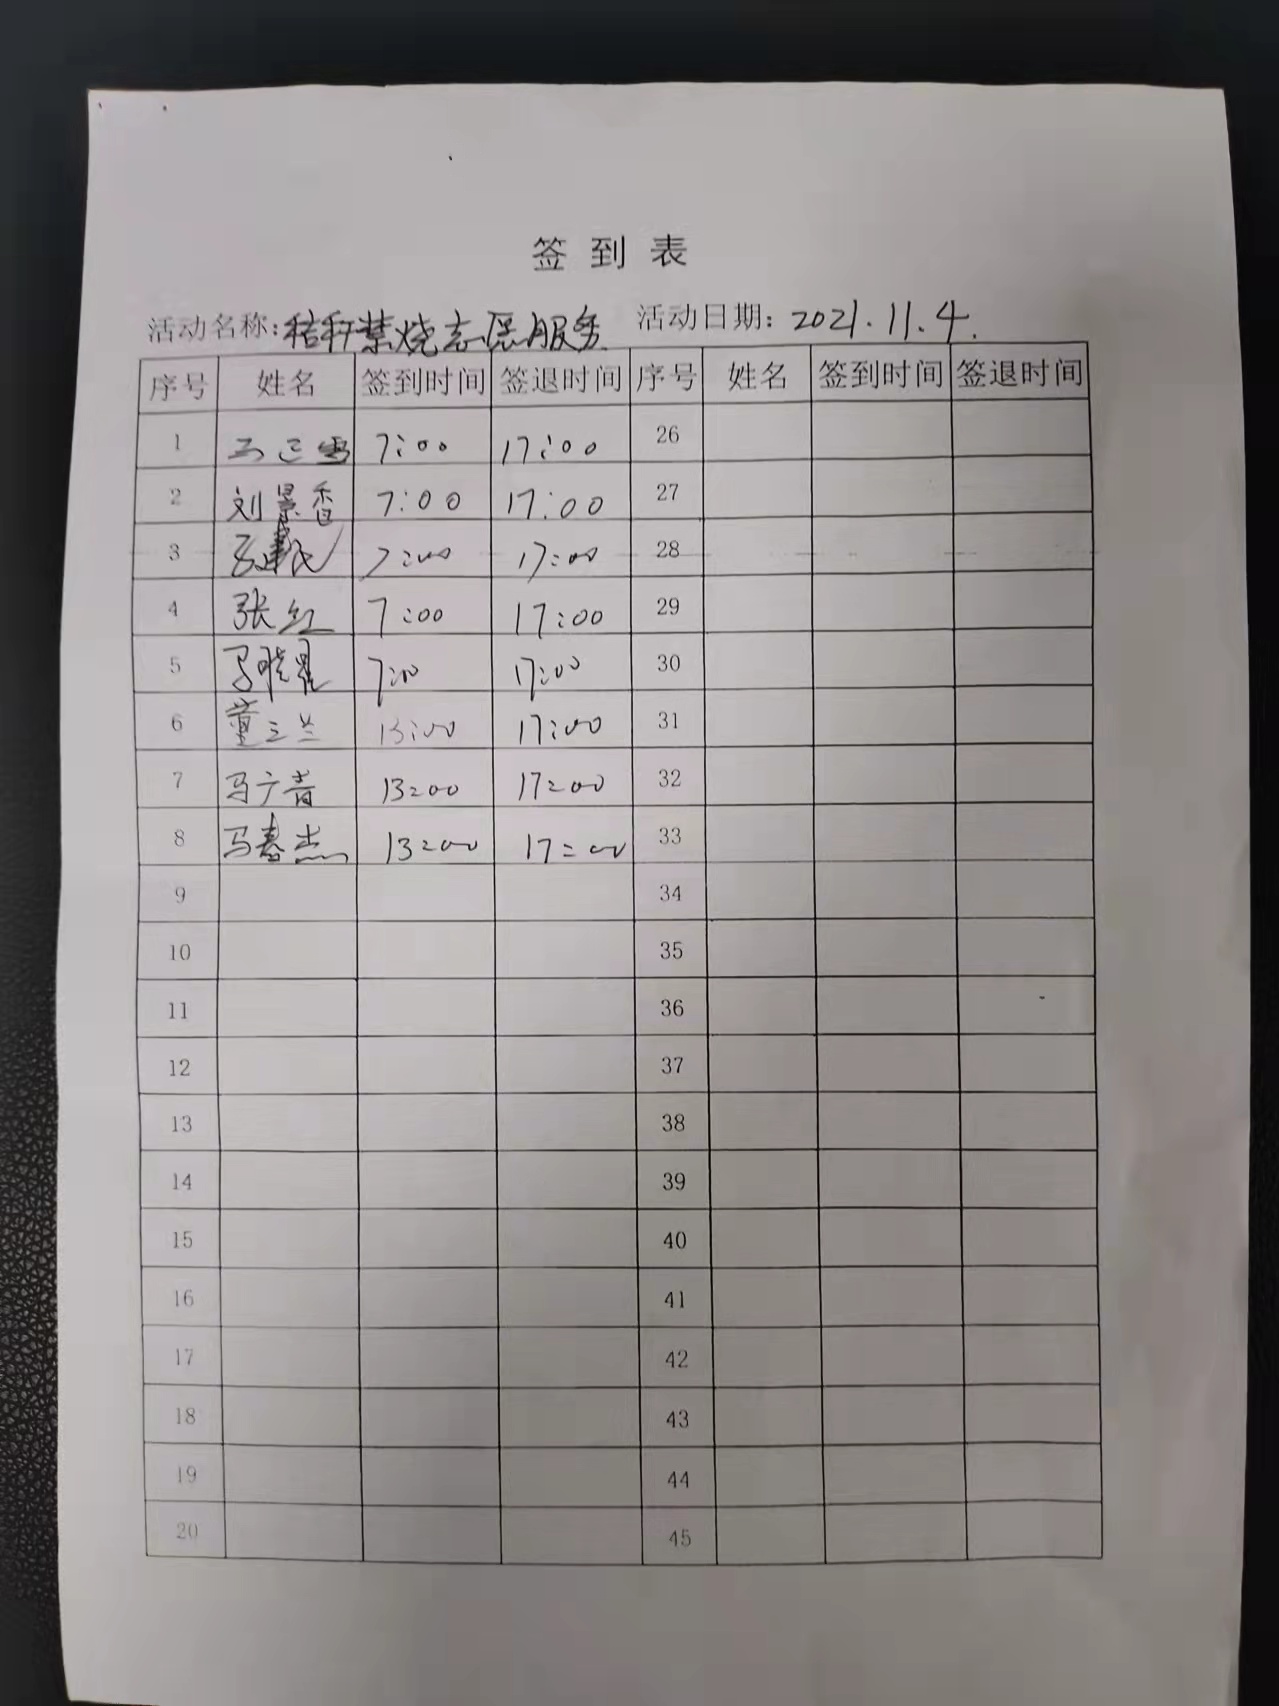 签到表
活动名称:秸秆禁烧志愿服务 活动日期: 2021.11.4.
序号 姓名 签到时间 签退时间 序号 姓名 签到时间 签退时间
1 7:00 17:00 26
2 刘景香 7:00 17:00 27
3 7:00 17:00 28
4 张红 7:00 17:00 29
5 马晓星 7:00 17:00 30
6 董三兰 13:00 17:00 31
7 马广青 13:00 17:00 32
8 马春杰 13:00 17:00 33
9 34
10 35
11 36
12 37
13 38
14 39
15 40
16 41
17 42
18 43
19 44
20 45